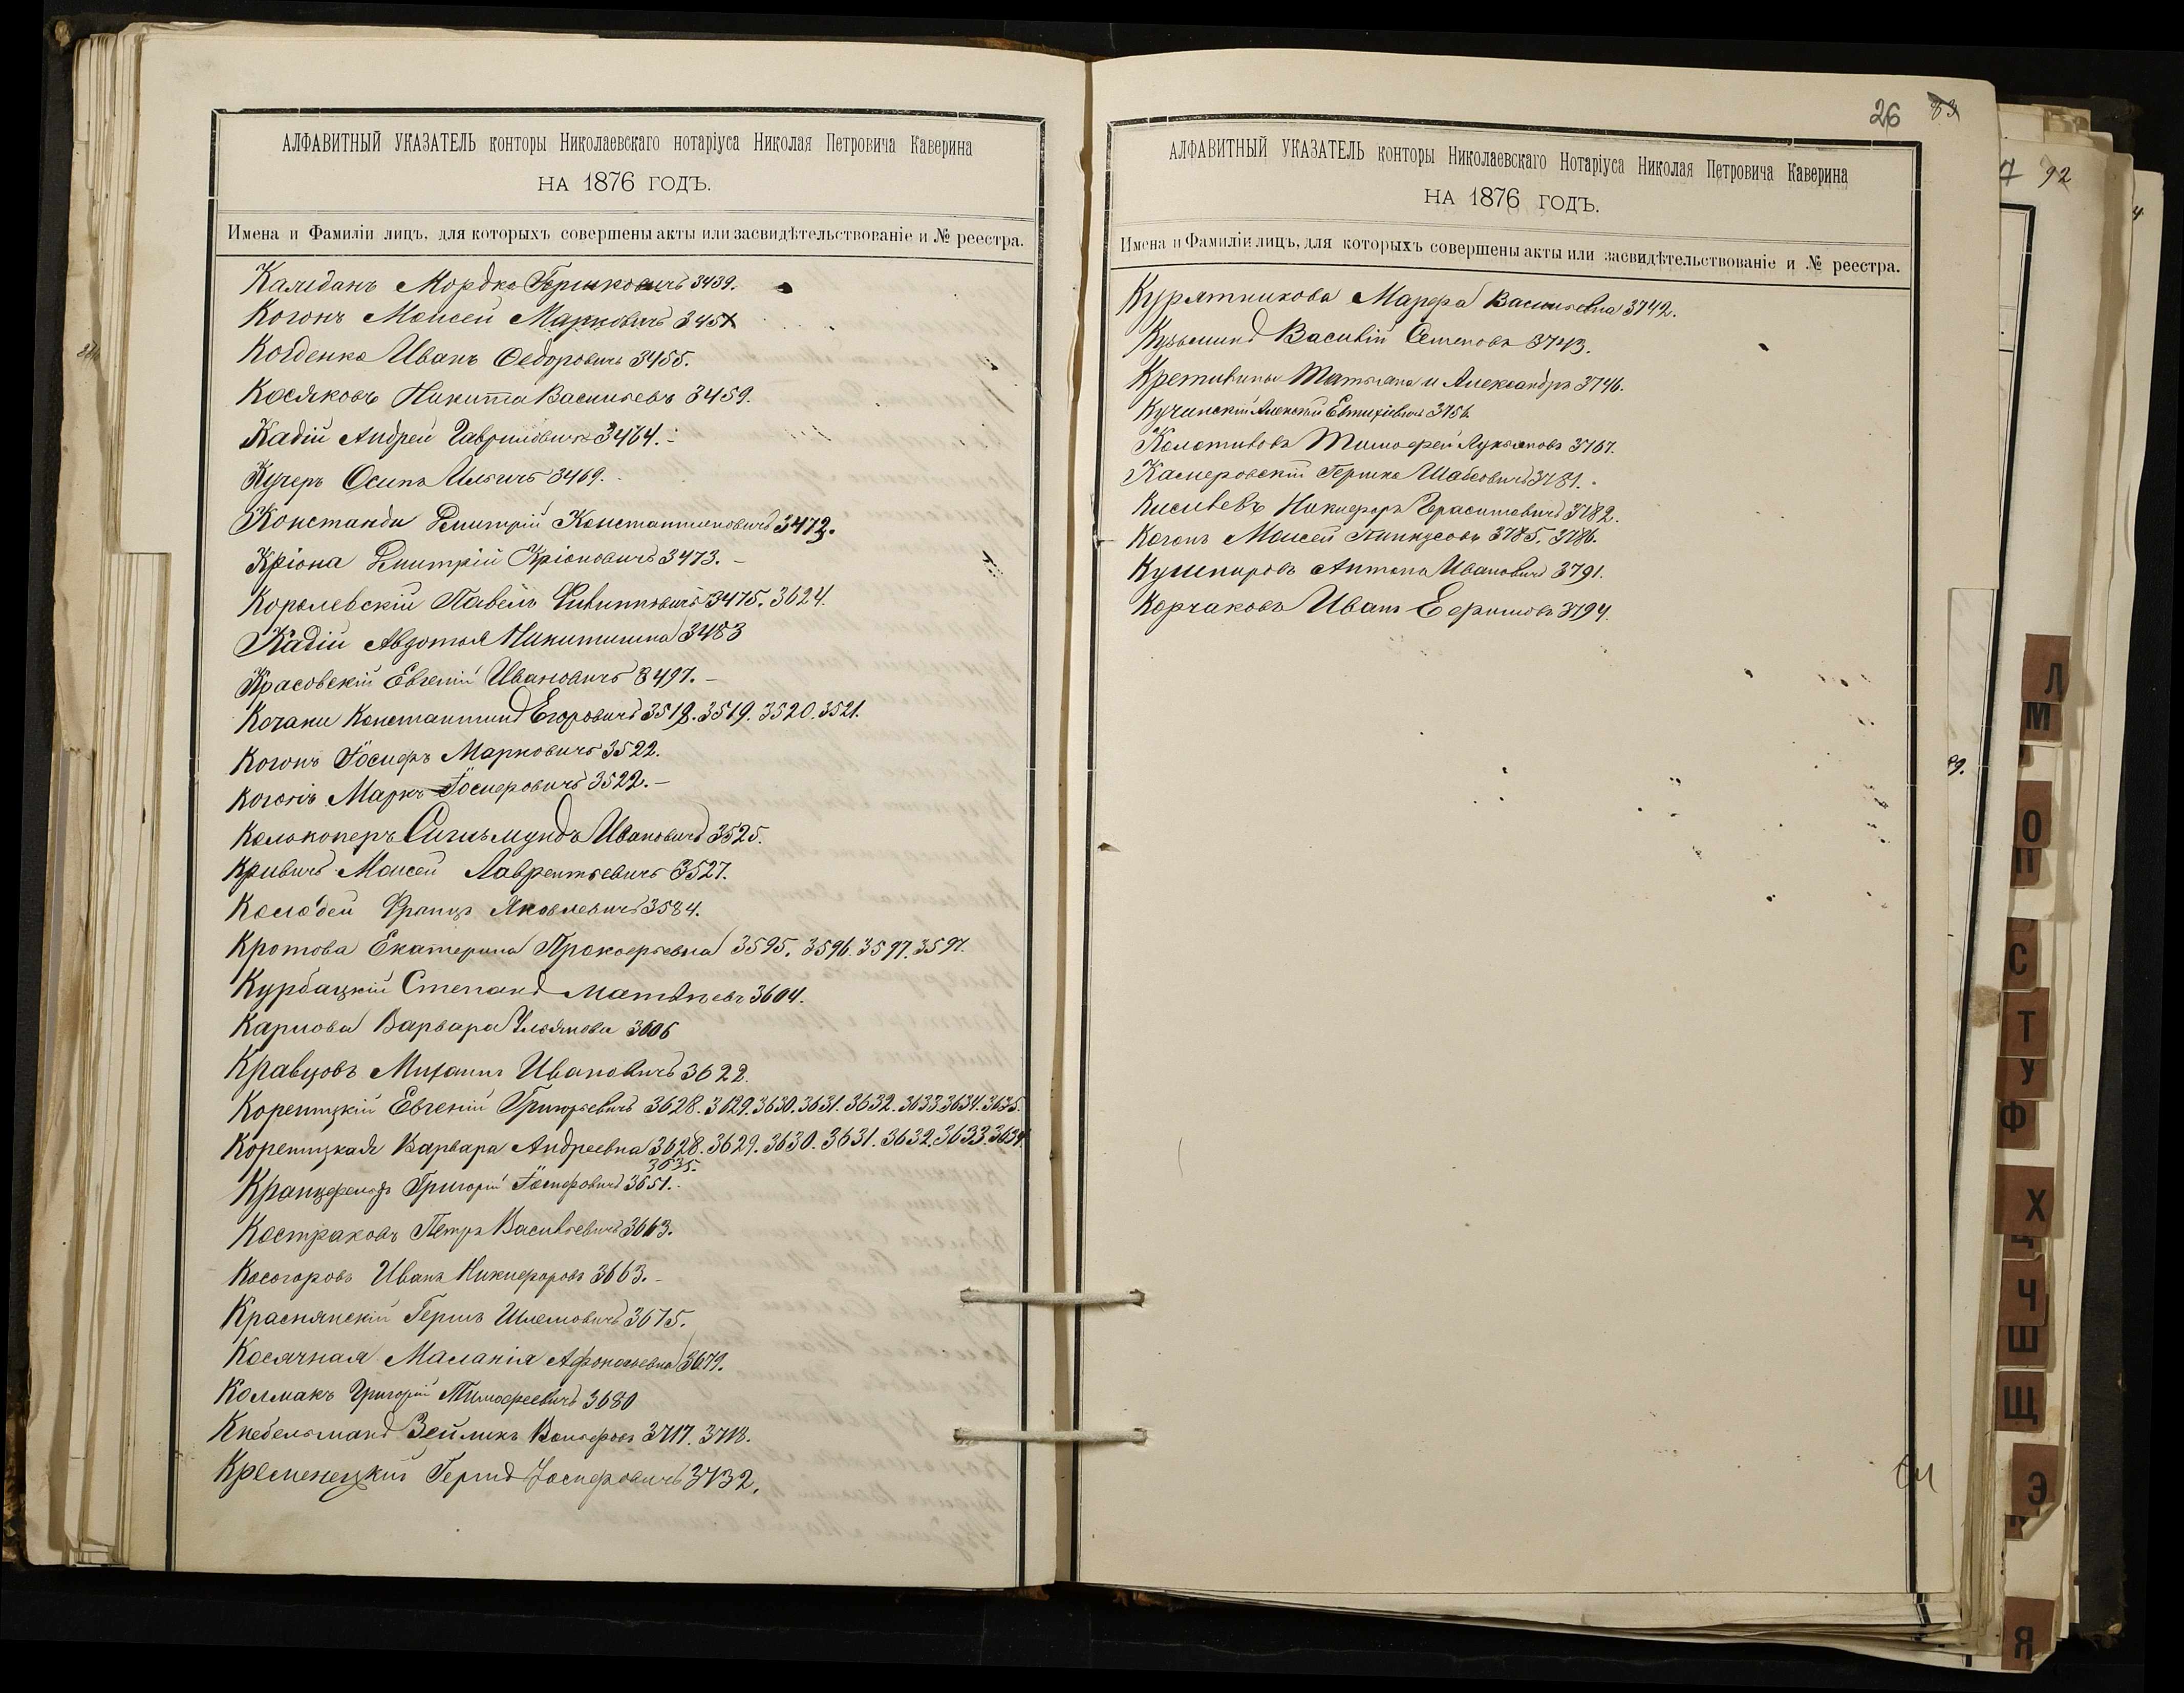 АЛФАВИТНЫЙ УКАЗАТЕЛЬ конторы Николаевскаго нотаріуса Николая Петровича Каверина
НА 1876 ГОДЪ.
Имена и Фамиліи лицъ, для которыхъ совершены акты или засвидѣтельствованіе и № реестра.
Мордко Гершковичъ 3439.
Когонъ Моисей Марковичъ
Иванъ Федоровичъ 3455.
Косяковъ Никита Васильевъ 3459.
Кадій Андрей Гавриловичъ 3464.
Кучеръ Осипъ Ильичъ 3469.
Константи Дмитрій Константиновичъ 3472.
Кріона Дмитрій Кріоновичъ 3473.
Королевскій Павелъ Филипповичъ 3475. 3624.
Кадій Авдотья Никитишна 3483
Красовскій Евгеній Ивановичъ 3497.
Кочаки Константинъ Егоровичъ 3518. 3519. 3520. 3521.
Когонъ Іосифъ Марковичъ 3522.
Когонъ Маркъ Іосифовичъ 3522.
Сигизмундъ Ивановичъ 3525.
Кривичъ Моисей Лаврентьевичъ 3527.
Колодей Францъ Яковлевичъ 3584.
Кротова Екатерина Прокофьевна 3595. 3596. 3597. 3597.
Курбацкій Степанъ Матвѣевъ 3604.
Карпова Варвара Ульянова 3606
Кравцовъ Михаилъ Ивановичъ 3622.
Корептцкій Евгеній Григорьевичъ 3628. 3629. 3630. 3631. 3632. 3633. 3634. 3635.
Корептцкая Варвара Андреевна 3628. 3629. 3630. 3631. 3632. 3633. 3634.
3635.
Кранцфельдъ Григорій Іосифовичъ 3651.
Костраковъ Петръ Васильевичъ 3663.
Косогоровъ Иванъ Никифоровъ 3663.
Краснянскій Гершъ Шлемовичъ 3675.
Косячная Маланія Афонасьевна 3679.
Колмакъ Григорій Тимофеевичъ 3680
Кнебельманъ Зейликъ Вольфовъ 3717. 3718.
Кременецкій Гершъ Іосифовичъ 3732.
26 83
АЛФАВИТНЫЙ УКАЗАТЕЛЬ конторы Николаевскаго Нотаріуса Николая Петровича Каверина
НА 1876 ГОДЪ.
Имена и Фамиліи лицъ, для которыхъ совершены акты или засвидѣтельствованіе и № реестра.
Курятникова Марфа Васильевна 3742.
Кузьминъ Василій Семеновъ 3743.
Татьяна и Александръ 3746.
Кучинскій Алексѣй Евтихіевичъ 3756.
Тимофей Лукьяновъ 3767.
Камеровскій Гершко Шабсовичъ 3781.
Киселевъ Никифоръ Герасимовичъ 3782.
Когонъ Моисей Пинкусовъ 3785. 3786.
Кушнировъ Антонъ Ивановичъ 3791.
Корчаковъ Иванъ Ефимовъ 3794.
92
Л
М
О
П
С
Т
У
Ф
Х
Ц
Ч
Ш
Щ
Э
Я